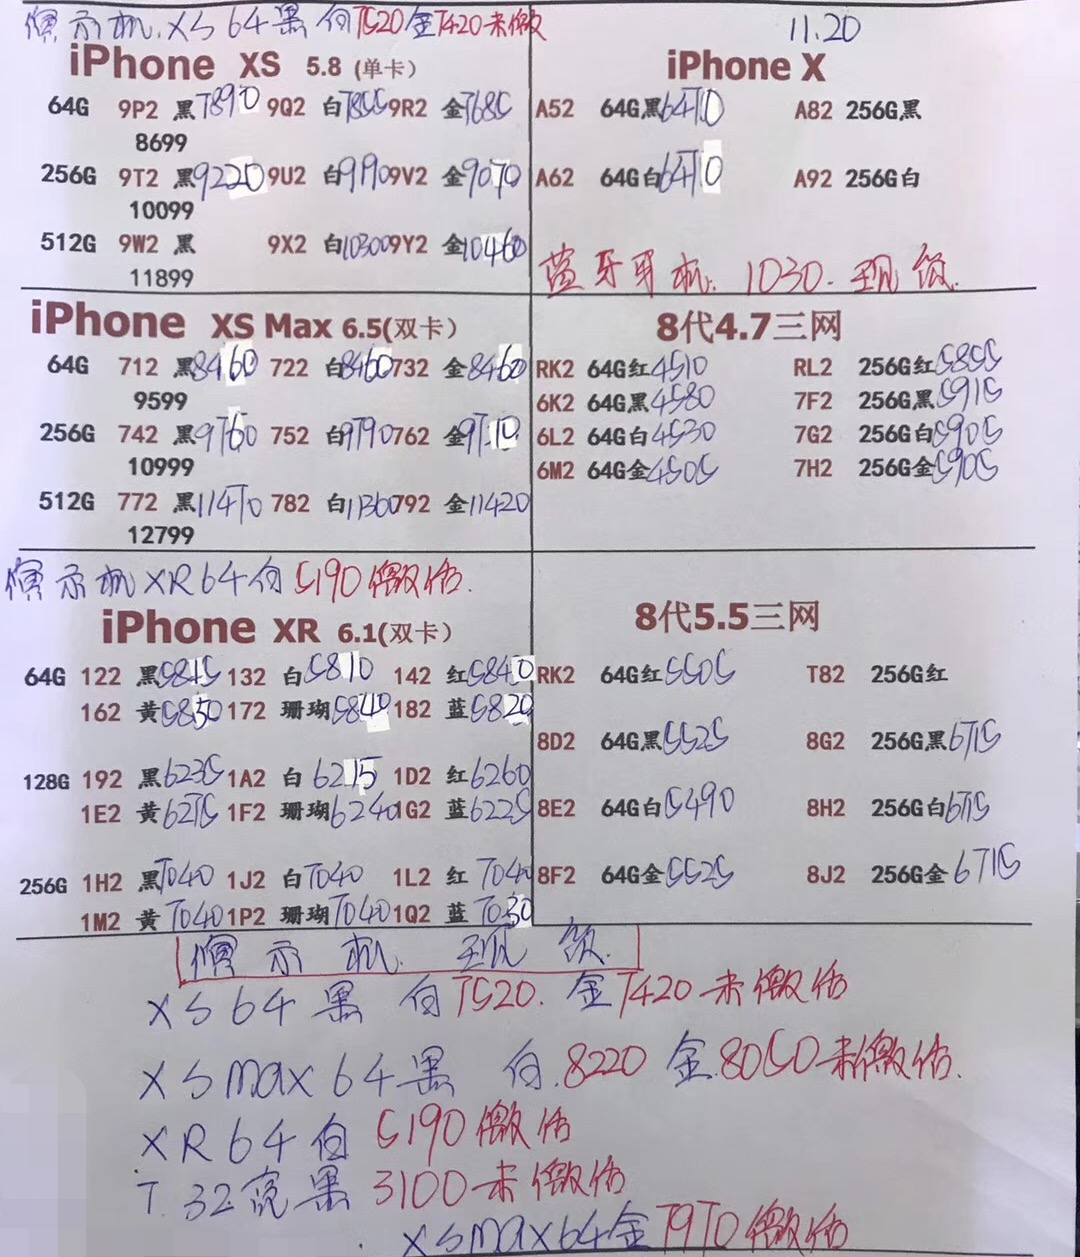 演示机.XS 64黑 白7520 金7420未激 11.20
iPhone XS 5.8 (单卡)
64G 9P2 黑7890 9Q2 白7855 9R2 金7685
8699
256G 9T2 黑9220 9U2 白9190 9V2 金9070
10099
512G 9W2 黑 9X2 白10300 9Y2 金10460
11899
iPhone X
A52 64G黑6470 A82 256G黑
A62 64G白6470 A92 256G白
蓝牙耳机. 1030. 现货.
iPhone XS Max 6.5(双卡)
64G 712 黑8460 722 白8460 732 金8460
9599
256G 742 黑9760 752 白9790 762 金9710
10999
512G 772 黑11470 782 白11360 792 金11420
12799
8代4.7三网
RK2 64G红4510 RL2 256G红5855
6K2 64G黑4580 7F2 256G黑5915
6L2 64G白4530 7G2 256G白5905
6M2 64G金4505 7H2 256G金5905
演示机XR64白5190激活.
iPhone XR 6.1(双卡)
64G 122 黑5815 132 白5810 142 红5840
162 黄5850 172 珊瑚5840 182 蓝5820
128G 192 黑6235 1A2 白6215 1D2 红6260
1E2 黄6275 1F2 珊瑚6240 1G2 蓝6225
256G 1H2 黑7040 1J2 白7040 1L2 红7040
1M2 黄7040 1P2 珊瑚7040 1Q2 蓝7030
8代5.5三网
RK2 64G红5505 T82 256G红
8D2 64G黑5525 8G2 256G黑6715
8E2 64G白5490 8H2 256G白6715
8F2 64G金5525 8J2 256G金6715
演示机. 现货.
XS64黑 白7520. 金7420未激活
XSmax64黑 白.8220 金.8050未激活.
XR64白 5190激活
7.32亮黑 3100未激活
XSmax64金7970激活